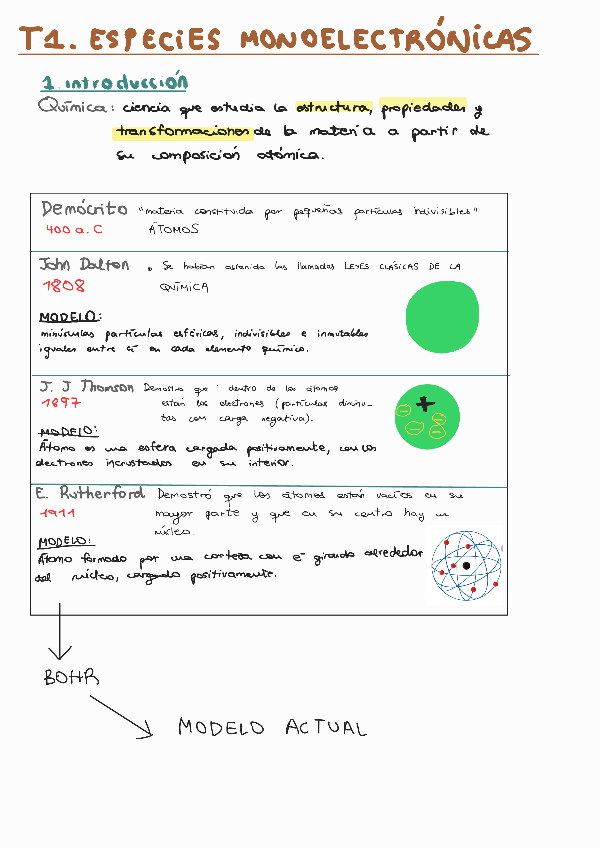 T1. ESPECIES MONOELECTRÓNICAS
1. introducción
Química: ciencia que estudia la estructura, propiedades y
transformaciones de la materia a partir de
su composición atómica.
Demócrito "materia constituida por pequeñas partículas indivisibles"
400 a.C ÁTOMOS
John Dalton . Se habían obtenido las llamadas LEYES CLÁSICAS DE LA
1808 QUÍMICA
MODELO:
minúsculas partículas esféricas, indivisibles e inmutables
iguales entre sí en cada elemento químico.
J. J Thomson Demostró que dentro de los átomos
1897 están los electrones (partículas diminu-
tas con carga negativa).
MODELO:
Átomo es una esfera cargada positivamente, con los
electrones incrustados en su interior.
E. Rutherford Demostró que los átomos están vacíos en su
1911 mayor parte y que en su centro hay un
núcleo.
MODELO:
Átomo formado por una corteza con e- girando alrededor
del núcleo, cargado positivamente.
BOHR
MODELO ACTUAL